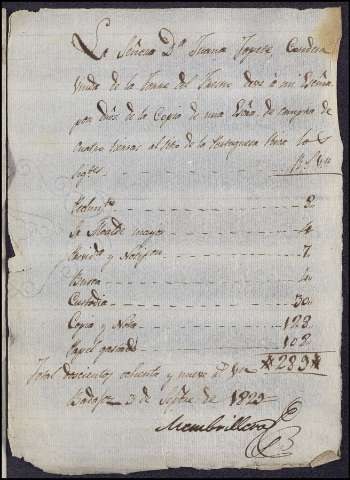 La Señora Dª Juana Topete, Condesa
Viuda de la Torre del Fresno deve á mi Escña
por dros. de la Copia de una Escra. de compra de
cuatro tierras al sitio de la Portuguesa
Sigtes. Rs Vn
Pedimto 2
Sr Alcalde mayor 4
Auto y Notifon 7
Busca
Custodia 30
Copia y Nota 128
Papel gastado 102
*289*
Total doscientos ochenta y nueve rs Vn
Badajz 3 de Sepbre de 1829
Membrillera